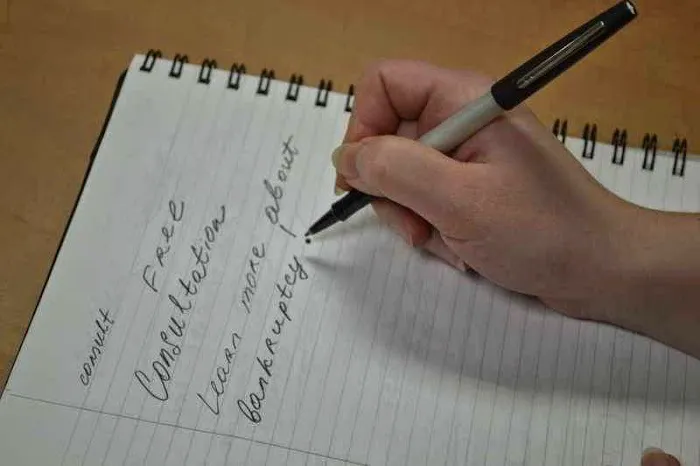 consult
FREE
Consultation
Learn more about
bankruptcy!